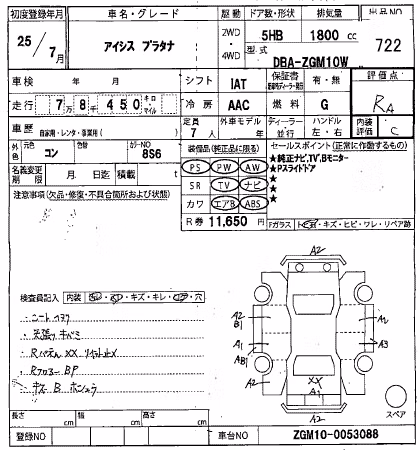 初度登録年月 車名・グレード 駆動 ドア数・形状 排気量 出品NO
25/7月 アイシス プラタナ 2WD・4WD 5HB 1800 cc 722
型式 DBA-ZGM10W
車検 年 月 シフト IAT 保証書 有・無 評価点
走行 7万8千450 キロ・マイル 冷房 AAC 燃料 G RA
車歴 自家用・レンタ・事業用( ) 定員 7人 外車モデル 年 ディーラー・並行 ハンドル 左・右 内装評価 C
外色 元色 コン 色 カラーNO 8S6 装備品(純正品に限る) セールスポイント(正常に作動するもの)
名義変更期限 月 日迄 積載 t PS PW AW ★純正ナビ,TV,Bモニター
注意事項(欠品・修復・不具合箇所および状態) SR TV ナビ ★Pスライドドア
カワ エアB ABS ★
★
★
R券 11,650円 Fガラス キズ・ヒビ・ワレ・リペア跡
検査員記入 内装 キズ・キレ・穴
シートヨゴレ
天張りキバミ
XX
BP
キズ B
A2
A2
B1
A1
AB1
A2
A2
A3
A2
XX
A1
スペア
長さ cm 幅 cm 高さ cm
登録NO 車台NO ZGM10-0053088